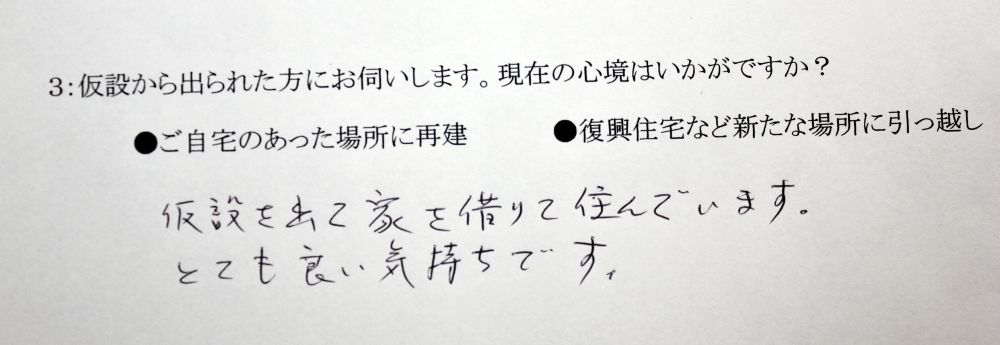 3：仮設から出られた方にお伺いします。現在の心境はいかがですか？
●ご自宅のあった場所に再建　●復興住宅など新たな場所に引っ越し
仮設を出て家を借りて住んでいます。
とても良い気持ちです。